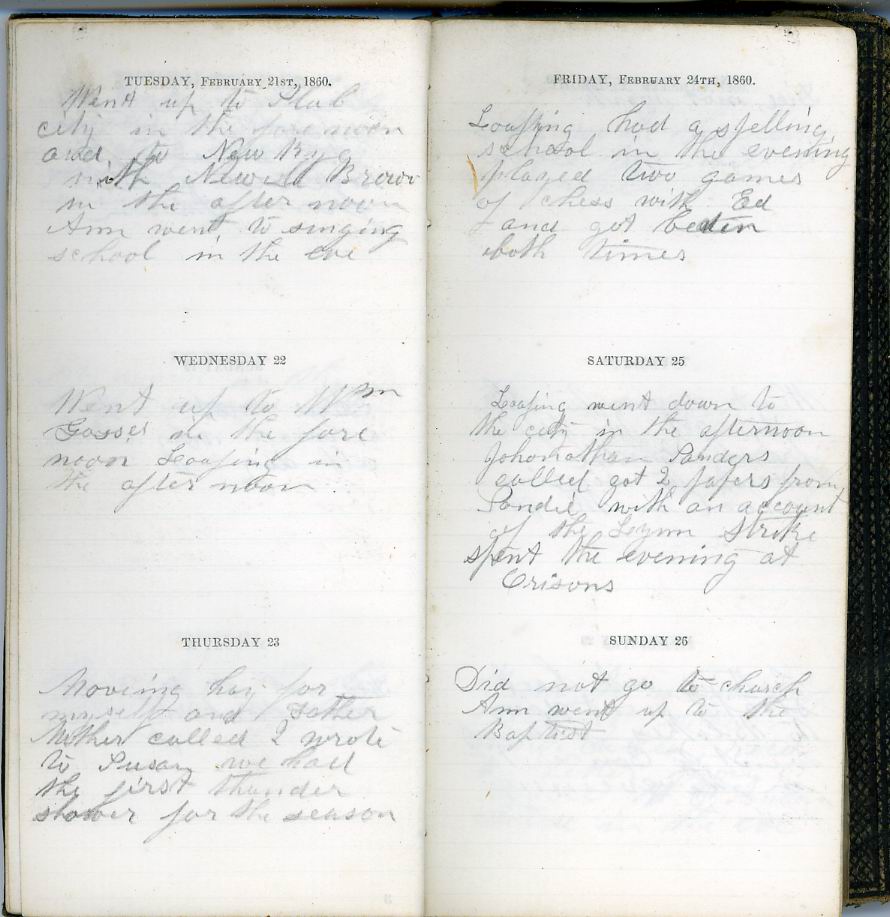 TUESDAY, FEBRUARY 21ST, 1860.
Went up to Slab
city in the fore noon
and to New Rye
with Newell Brown
in the after noon
Ann went to singing
school in the eve
WEDNESDAY 22
Went up to Wm
Gosses in the fore
noon Loafing in
the after noon
THURSDAY 23
Moveing hay for
myself and Father
Mother called I wrote
to Susan we had
the first thunder
shower for the season
FRIDAY, FEBRUARY 24TH, 1860.
Loafing had a spelling
school in the evening
played two games
of chess with Ed
and got beaten
both times
SATURDAY 25
Loafing went down to
the city in the afternoon
Johonathan Sanders
called got 2 papers from
with an account
of the Lynn Strike
spent the evening at
Orisons
SUNDAY 26
Did not go to church
Ann went up to the
Baptist